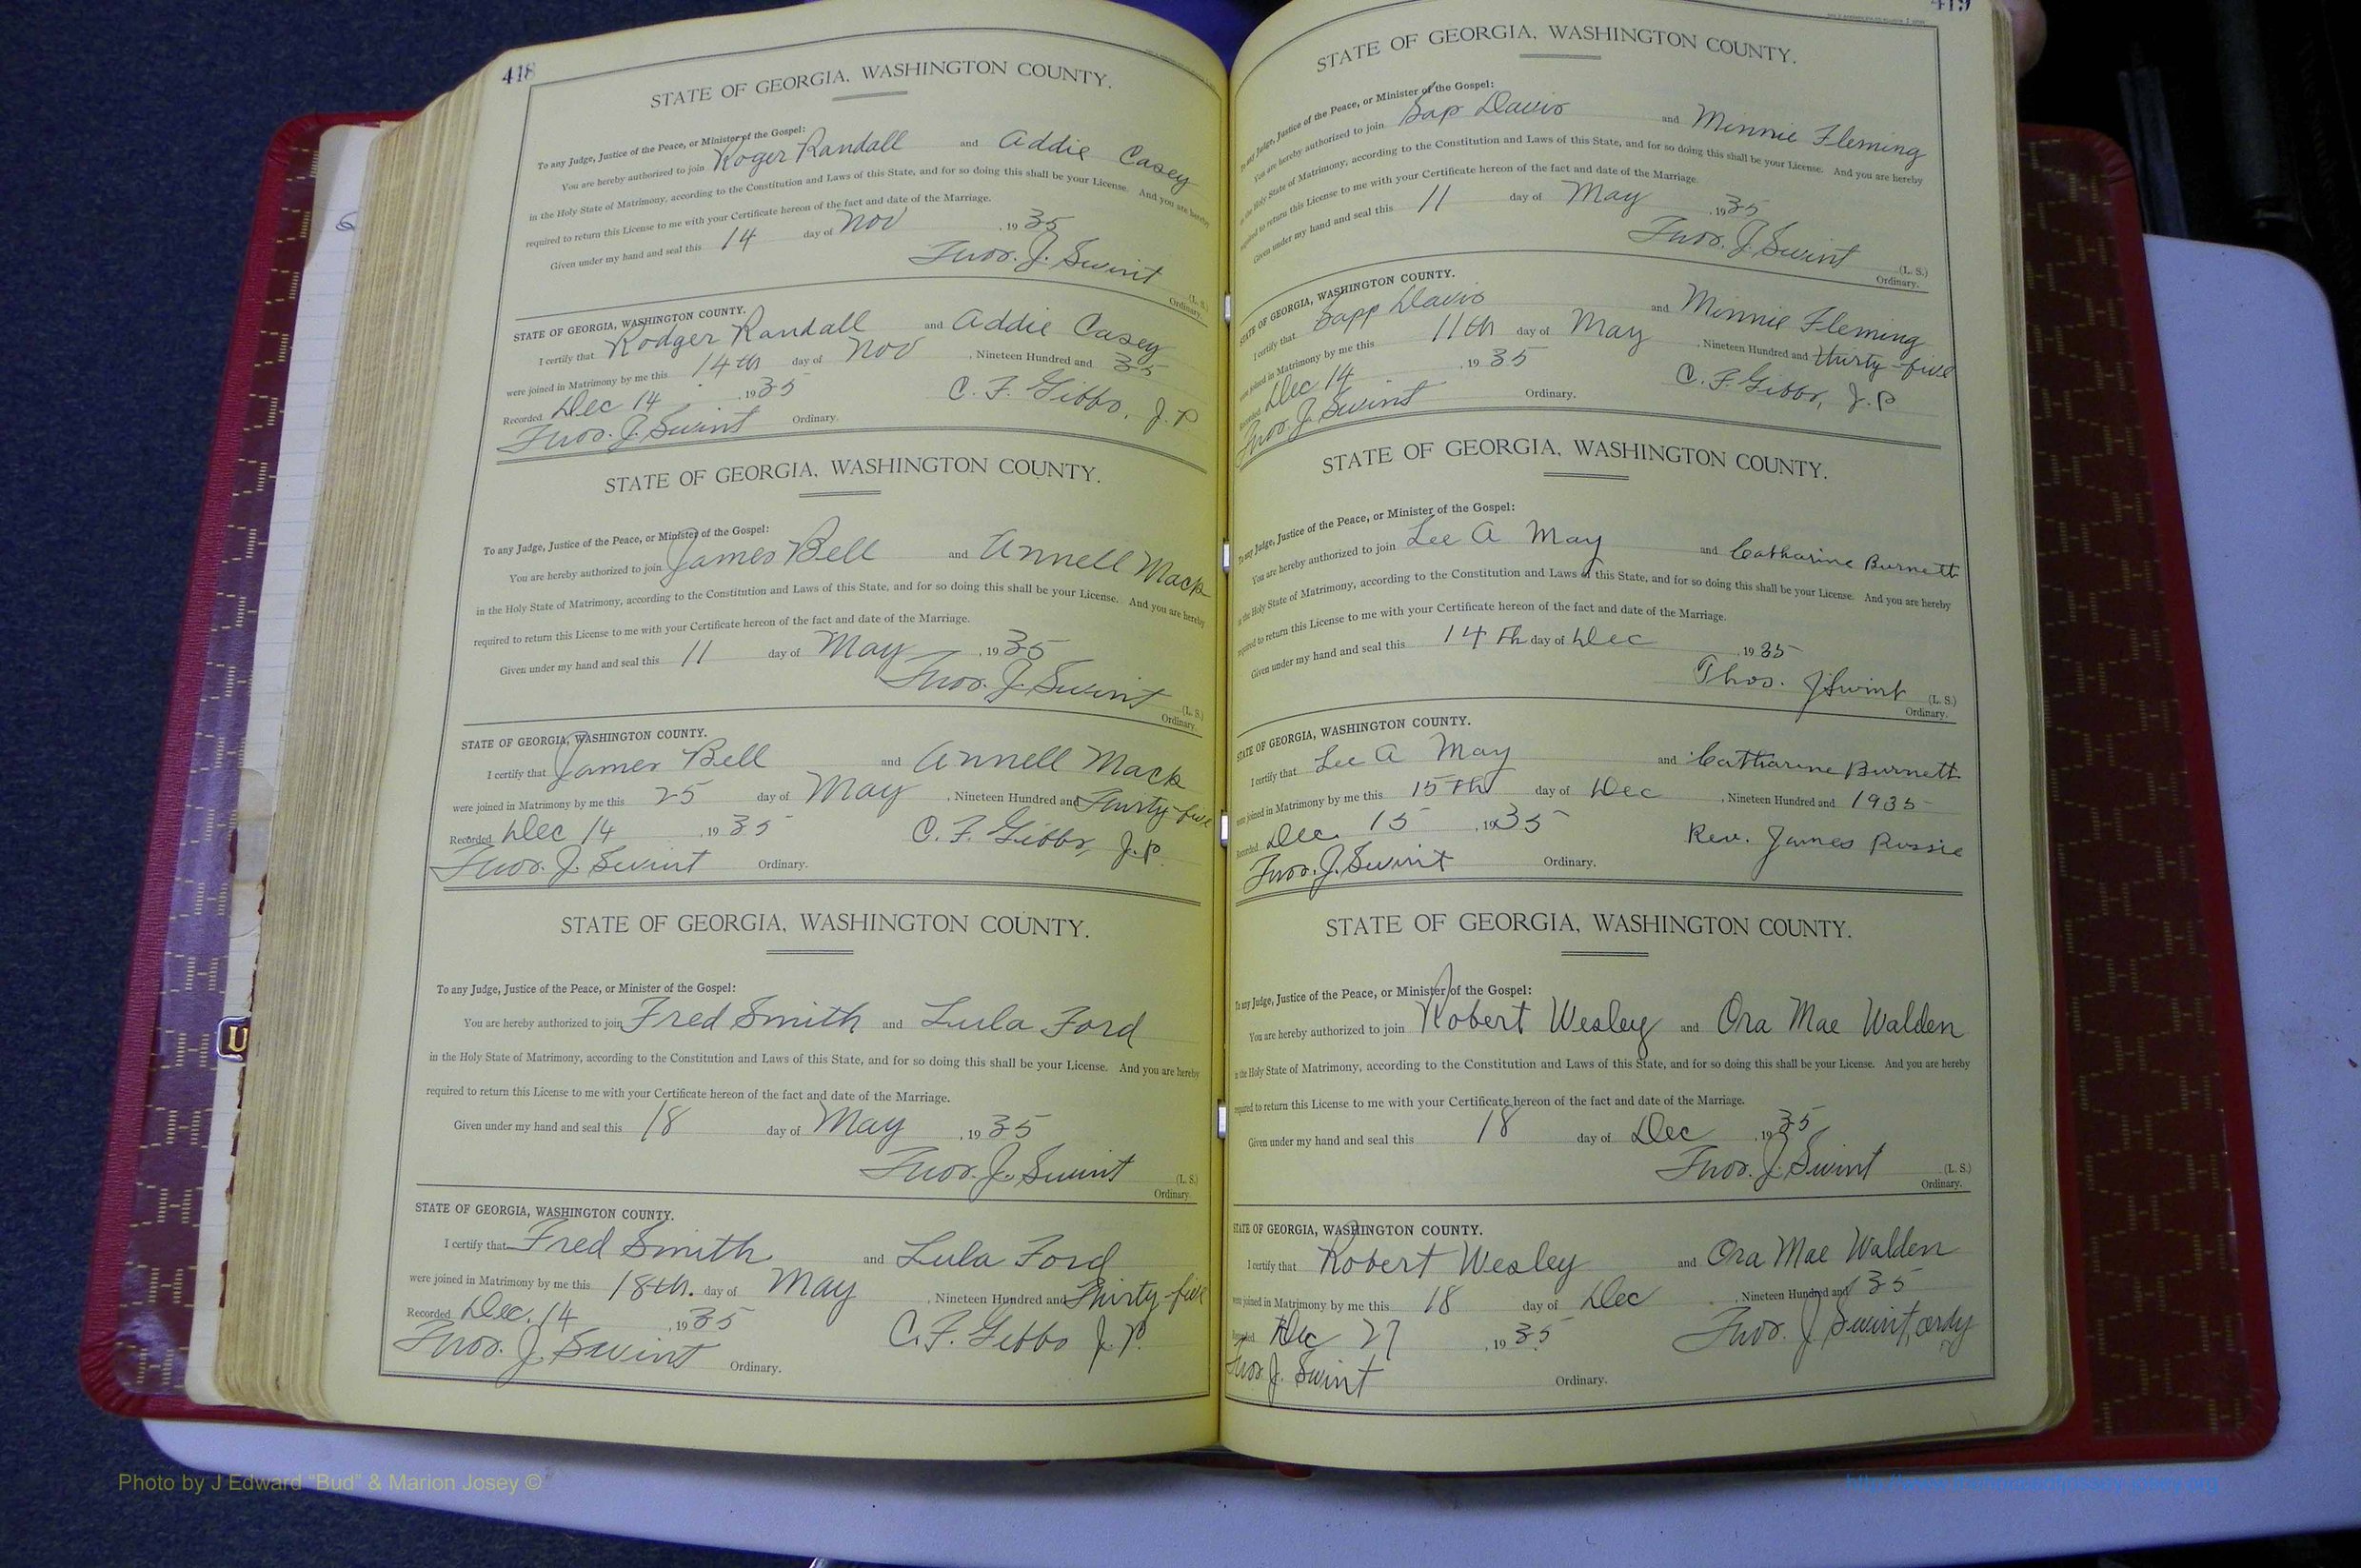 418
STATE OF GEORGIA, WASHINGTON COUNTY.
To any Judge, Justice of the Peace, or Minister of the Gospel:
You are hereby authorized to join Roger Randall and Addie Casey
in the Holy State of Matrimony, according to the Constitution and Laws of this State, and for so doing this shall be your License. And you are hereby
required to return this License to me with your Certificate hereon of the fact and date of the Marriage.
Given under my hand and seal this 14 day of Nov , 19 35
Thos. J. Swint (L. S.)
Ordinary.
STATE OF GEORGIA, WASHINGTON COUNTY.
I certify that Rodger Randall and Addie Casey
were joined in Matrimony by me this 14th day of Nov , Nineteen Hundred and 35
Recorded Dec 14 , 19 35 C. F. Gibbs, J. P
Thos. J. Swint Ordinary.
STATE OF GEORGIA, WASHINGTON COUNTY.
To any Judge, Justice of the Peace, or Minister of the Gospel:
You are hereby authorized to join James Bell and Annell Mack
in the Holy State of Matrimony, according to the Constitution and Laws of this State, and for so doing this shall be your License. And you are hereby
required to return this License to me with your Certificate hereon of the fact and date of the Marriage.
Given under my hand and seal this 11 day of May , 19 35
Thos. J. Swint (L. S.)
Ordinary.
STATE OF GEORGIA, WASHINGTON COUNTY.
I certify that James Bell and Annell Mack
were joined in Matrimony by me this 25 day of May , Nineteen Hundred and Thirty-five
Recorded Dec 14 , 19 35 C. F. Gibbs, J. P.
Thos. J. Swint Ordinary.
STATE OF GEORGIA, WASHINGTON COUNTY.
To any Judge, Justice of the Peace, or Minister of the Gospel:
You are hereby authorized to join Fred Smith and Lula Ford
in the Holy State of Matrimony, according to the Constitution and Laws of this State, and for so doing this shall be your License. And you are hereby
required to return this License to me with your Certificate hereon of the fact and date of the Marriage.
Given under my hand and seal this 18 day of May , 19 35
Thos. J. Swint (L. S.)
Ordinary.
STATE OF GEORGIA, WASHINGTON COUNTY.
I certify that Fred Smith and Lula Ford
were joined in Matrimony by me this 18th. day of May , Nineteen Hundred and Thirty-five
Recorded Dec. 14 , 19 35 C. F. Gibbs J. P.
Thos. J. Swint Ordinary.
419
STATE OF GEORGIA, WASHINGTON COUNTY.
To any Judge, Justice of the Peace, or Minister of the Gospel:
You are hereby authorized to join Sap Davis and Minnie Fleming
in the Holy State of Matrimony, according to the Constitution and Laws of this State, and for so doing this shall be your License. And you are hereby
required to return this License to me with your Certificate hereon of the fact and date of the Marriage.
Given under my hand and seal this 11 day of May , 19 35
Thos. J. Swint (L. S.)
Ordinary.
STATE OF GEORGIA, WASHINGTON COUNTY.
I certify that Sapp Davis and Minnie Fleming
were joined in Matrimony by me this 11th day of May , Nineteen Hundred and thirty-five
Recorded Dec 14 , 19 35 C. F. Gibbs, J. P
Thos. J. Swint Ordinary.
STATE OF GEORGIA, WASHINGTON COUNTY.
To any Judge, Justice of the Peace, or Minister of the Gospel:
You are hereby authorized to join Lee A May and Catharine Burnett
in the Holy State of Matrimony, according to the Constitution and Laws of this State, and for so doing this shall be your License. And you are hereby
required to return this License to me with your Certificate hereon of the fact and date of the Marriage.
Given under my hand and seal this 14th day of Dec , 19 35
Thos. J Swint (L. S.)
Ordinary.
STATE OF GEORGIA, WASHINGTON COUNTY.
I certify that Lee A May and Catharine Burnett
were joined in Matrimony by me this 15th day of Dec , Nineteen Hundred and 1935
Recorded Dec. 15 , 19 35 Rev. James Russie
Thos. J. Swint Ordinary.
STATE OF GEORGIA, WASHINGTON COUNTY.
To any Judge, Justice of the Peace, or Minister of the Gospel:
You are hereby authorized to join Robert Wesley and Ora Mae Walden
in the Holy State of Matrimony, according to the Constitution and Laws of this State, and for so doing this shall be your License. And you are hereby
required to return this License to me with your Certificate hereon of the fact and date of the Marriage.
Given under my hand and seal this 18 day of Dec , 19 35
Thos. J. Swint (L. S.)
Ordinary.
STATE OF GEORGIA, WASHINGTON COUNTY.
I certify that Robert Wesley and Ora Mae Walden
were joined in Matrimony by me this 18 day of Dec , Nineteen Hundred and 35
Recorded Dec 27 , 19 35 Thos. J Swint, ordy
Thos. J. Swint Ordinary.
U
Photo by J Edward "Bud" & Marion Josey ©